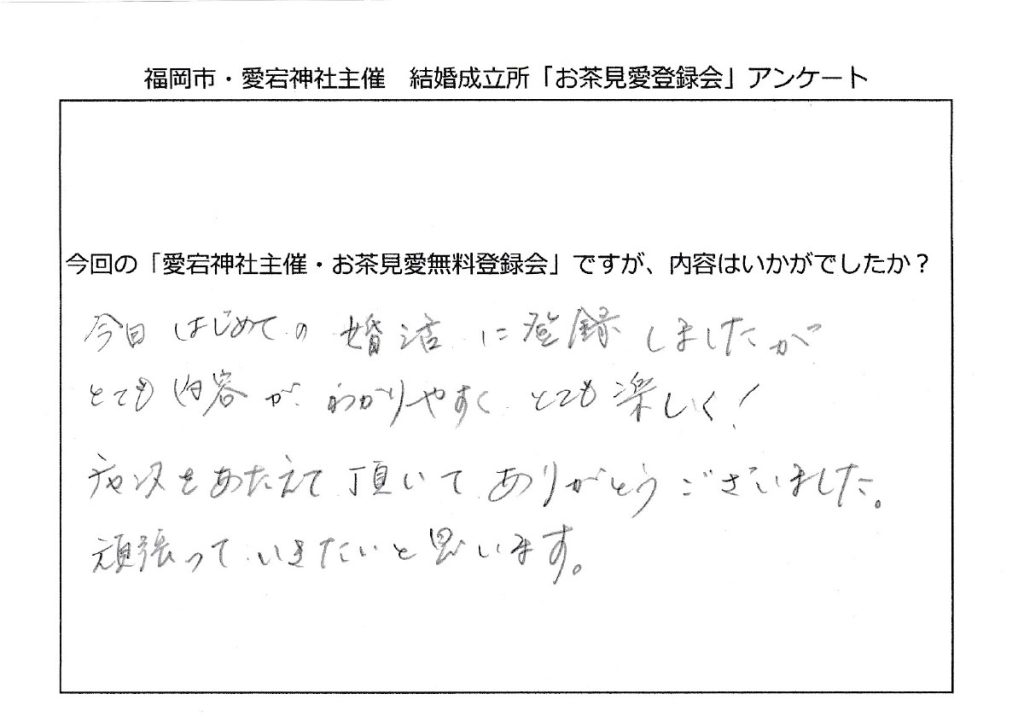 福岡市・愛宕神社主催　結婚成立所「お茶見愛登録会」アンケート
今回の「愛宕神社主催・お茶見愛無料登録会」ですが、内容はいかがでしたか？
今日はじめての婚活に登録しましたが
とても内容が、わかりやすくとても楽しく！
チャンスをあたえて頂いてありがとうございました。
頑張っていきたいと思います。